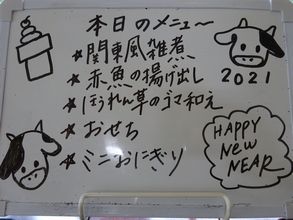 本日のメニュ〜
★関東風雑煮
★赤魚の揚げ出し
★ほうれん草のゴマ和え
★おせち
★ミニおにぎり
2021
HAPPY
NeW
NEAR